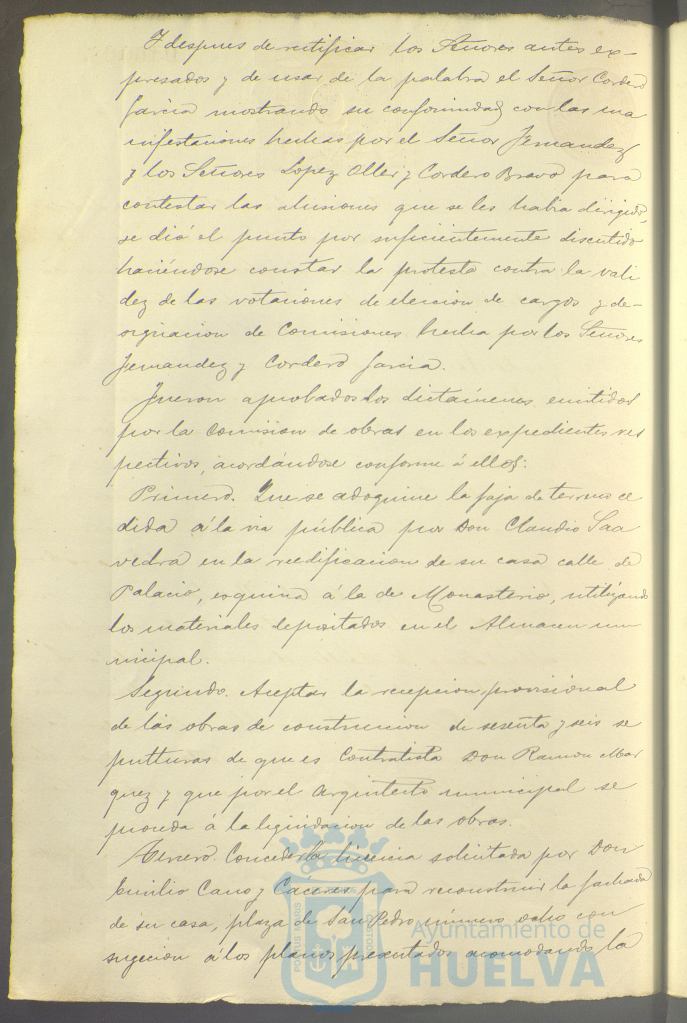 Y despues de rectificar los Señores antes ex-
presados y de usar de la palabra el Señor Cordero
Garcia mostrando su conformidad con las ma
nifestaciones hechas por el Señor Fernandez
y los Señores Lopez Oller y Cordero Bravo para
contestar las alusiones que se les habia dirigido,
se dió el punto por suficientemente discutido
haciéndose constar la protesta contra la vali
dez de las votaciones de eleccion de cargos y de-
signacion de Comisiones hecha por los Señores
Fernandez y Cordero Garcia.
Fueron aprobados los dictámenes emitidos
por la Comision de obras en los expedientes res
pectivos, acordándose conforme á ellos:
Primero. Que se adoquine la faja de terreno ce
dida á la via pública por Don Claudio Saa
vedra en la reedificacion de su casa calle de
Palacio, esquina á la de Monasterio, utilizando
los materiales depositados en el Almacen mu
nicipal.
Segundo. Aceptar la recepcion provisional
de las obras de construccion de sesenta y seis se
pulturas de que es Contratista Don Ramon Mar
quez y que por el Arquitecto municipal se
proceda á la liquidacion de las obras.
Tercero. Conceder la licencia solicitada por Don
Emilio Cano y Cáceres para reconstruir la fachada
de su casa, plaza de San Pedro, número ocho con
sugecion á los planos presentados acomodando la
Ayuntamiento de
HUELVA